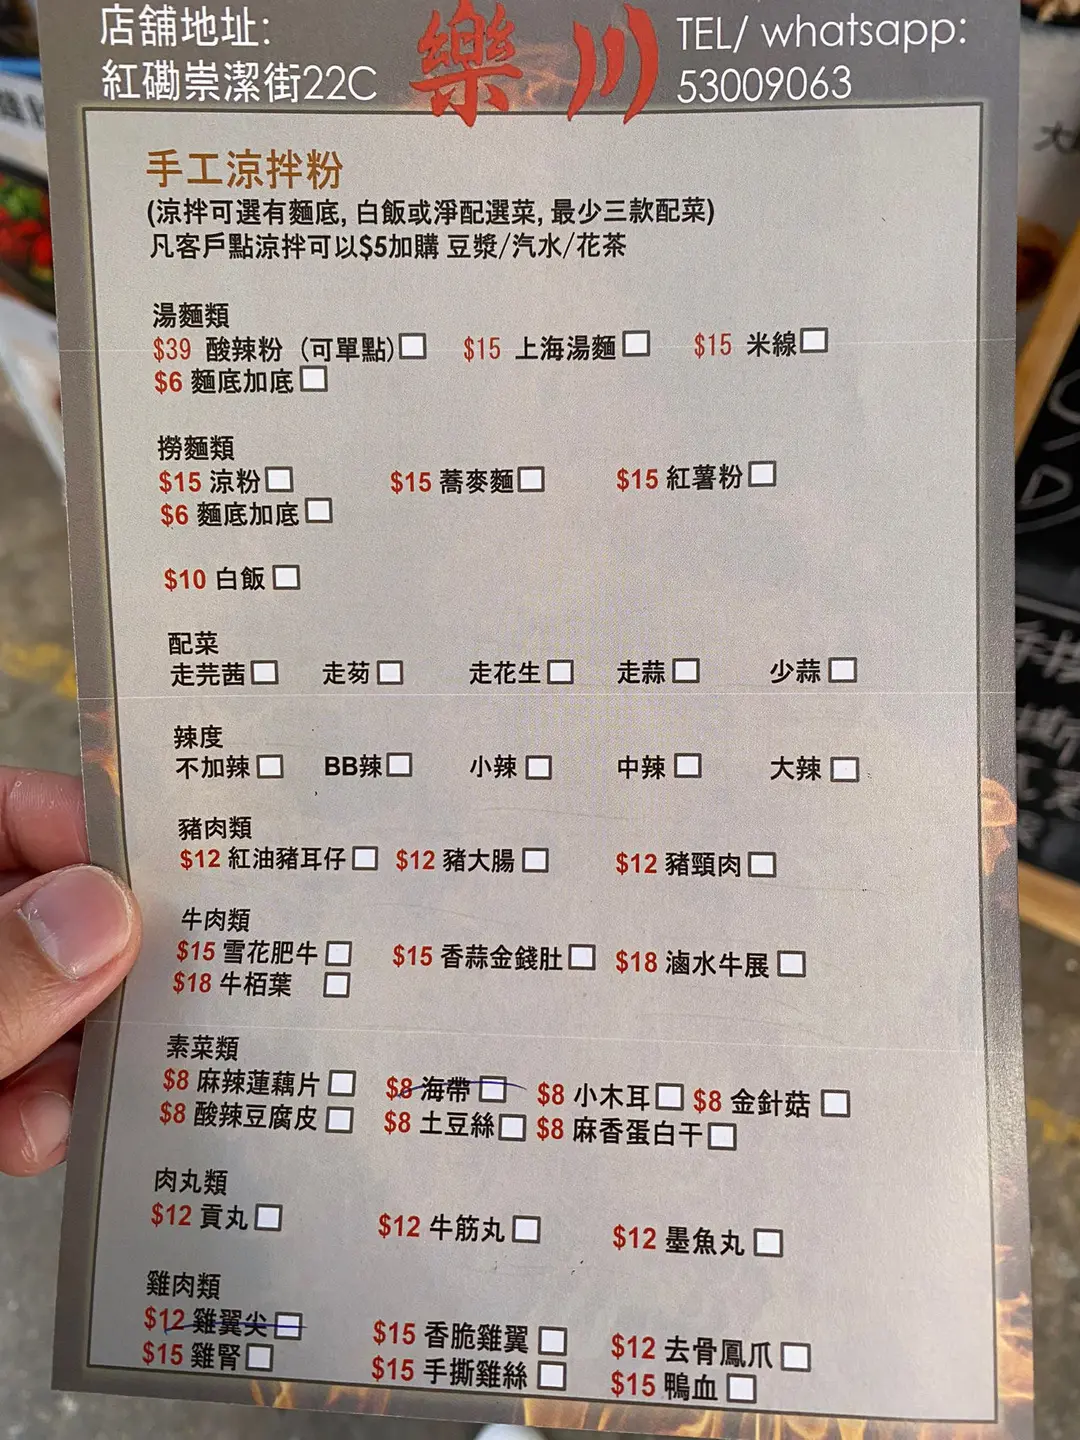 店舖地址:
紅磡崇潔街22C
樂川
TEL/ whatsapp:
53009063
手工涼拌粉
(涼拌可選有麵底, 白飯或淨配選菜, 最少三款配菜)
凡客戶點涼拌可以$5加購 豆漿/汽水/花茶
湯麵類
$39 酸辣粉 (可單點) $15 上海湯麵 $15 米線
$6 麵底加底
撈麵類
$15 涼粉 $15 蕎麥麵 $15 紅薯粉
$6 麵底加底
$10 白飯
配菜
走芫茜 走芴 走花生 走蒜 少蒜
辣度
不加辣 BB辣 小辣 中辣 大辣
豬肉類
$12 紅油豬耳仔 $12 豬大腸 $12 豬頸肉
牛肉類
$15 雪花肥牛 $15 香蒜金錢肚 $18 滷水牛展
$18 牛栢葉
素菜類
$8 麻辣蓮藕片 $8 海帶 $8 小木耳 $8 金針菇
$8 酸辣豆腐皮 $8 土豆絲 $8 麻香蛋白干
肉丸類
$12 貢丸 $12 牛筋丸 $12 墨魚丸
雞肉類
$12 雞翼尖 $15 香脆雞翼 $12 去骨鳳爪
$15 雞腎 $15 手撕雞絲 $15 鴨血